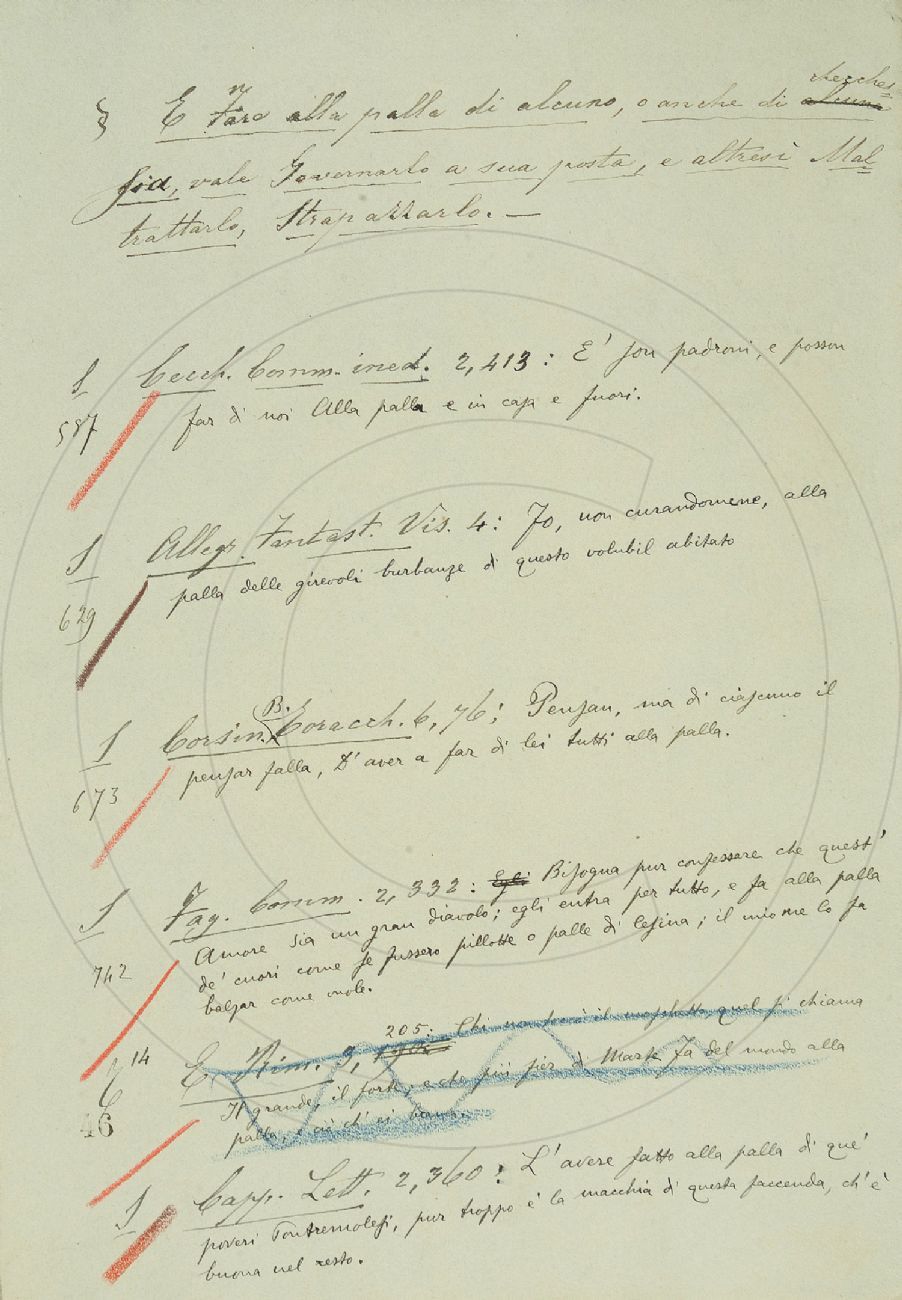 § E Fare alla palla di alcuno, o anche di alcuna cherches=
sia, vale Governarlo a sua posta, e altresì Mal=
trattarlo, Strapazzarlo. —
S Cecch. Comm. ined. 2, 413: E' son padroni, e posson
587 far di noi Alla palla e in casa e fuori.
S Allegr. Fantast. Vis. 4: Io, non curandomene, alla
629 palla delle girevoli burbanze di questo volubil abitato
S Corsin. B. Coracch. 6, 76: Pensan, ma di ciascuno il
673 pensar falla, D' aver a far di lei tutti alla palla.
S Fag. Comm. 2, 332: Egli Bisogna pur confessare che quest'
742 Amore sia un gran diavolo; egli entra per tutto, e fa alla palla
de' cuori come se fussero pillotte o palle di lesina; il mio me lo fa
balzar come vuole.
14 E Rim. 3, 205: Chi non il quel si chiama
46 Il grande, il forte, e che più fier di Marte Fa del mondo alla
palla, e ciò ch' ei brama.
S Capp. Lett. 2, 360: L' avere fatto alla palla di que'
poveri Pontremolesi, pur troppo è la macchia di questa faccenda, ch' è
buona nel resto.